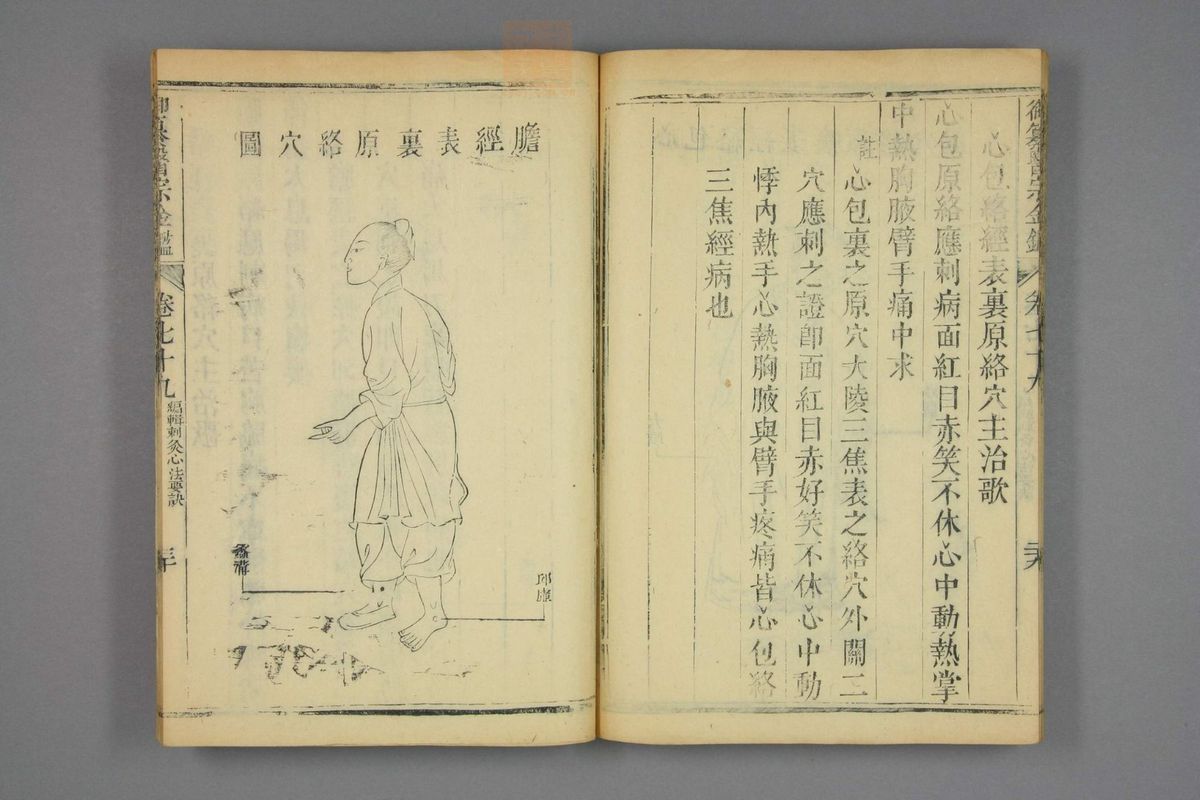 御纂醫宗金鑑
卷七十九
心包絡經表裏原絡穴主治歌
心包原絡應刺病面紅目赤笑不休心中動熱掌
中熱胸腋臂手痛中求
註
心包裏之原穴大陵三焦表之絡穴外關二
穴應刺之證卽面紅目赤好笑不休心中動
悸內熱手心熱胸腋與臂手疼痛皆心包絡
三焦經病也
膽經表裏原絡穴圖
邱墟
蠡溝
御纂醫宗金鑑
卷七十九
編輯刺灸心法要訣
三十